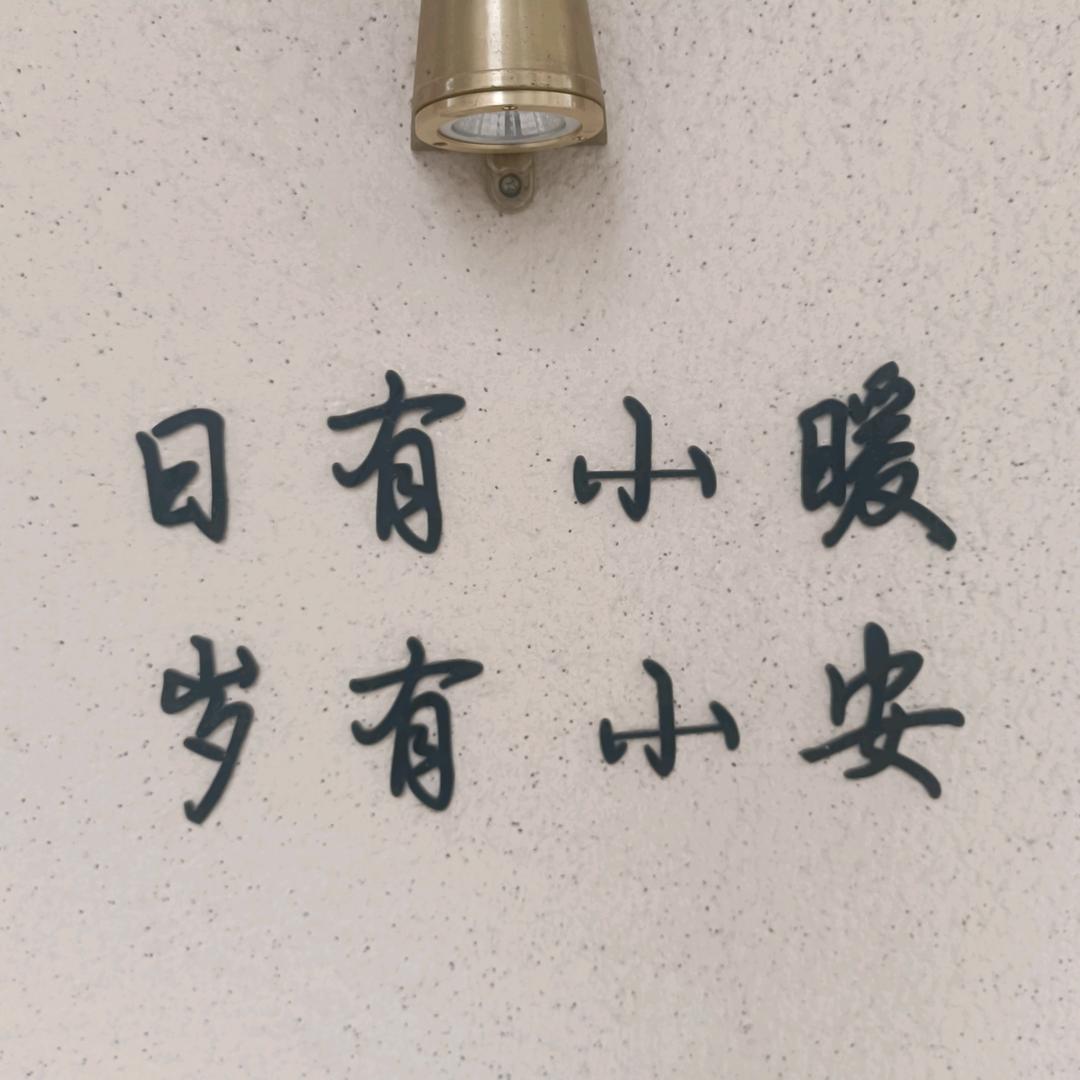 日有小暖
岁有小安